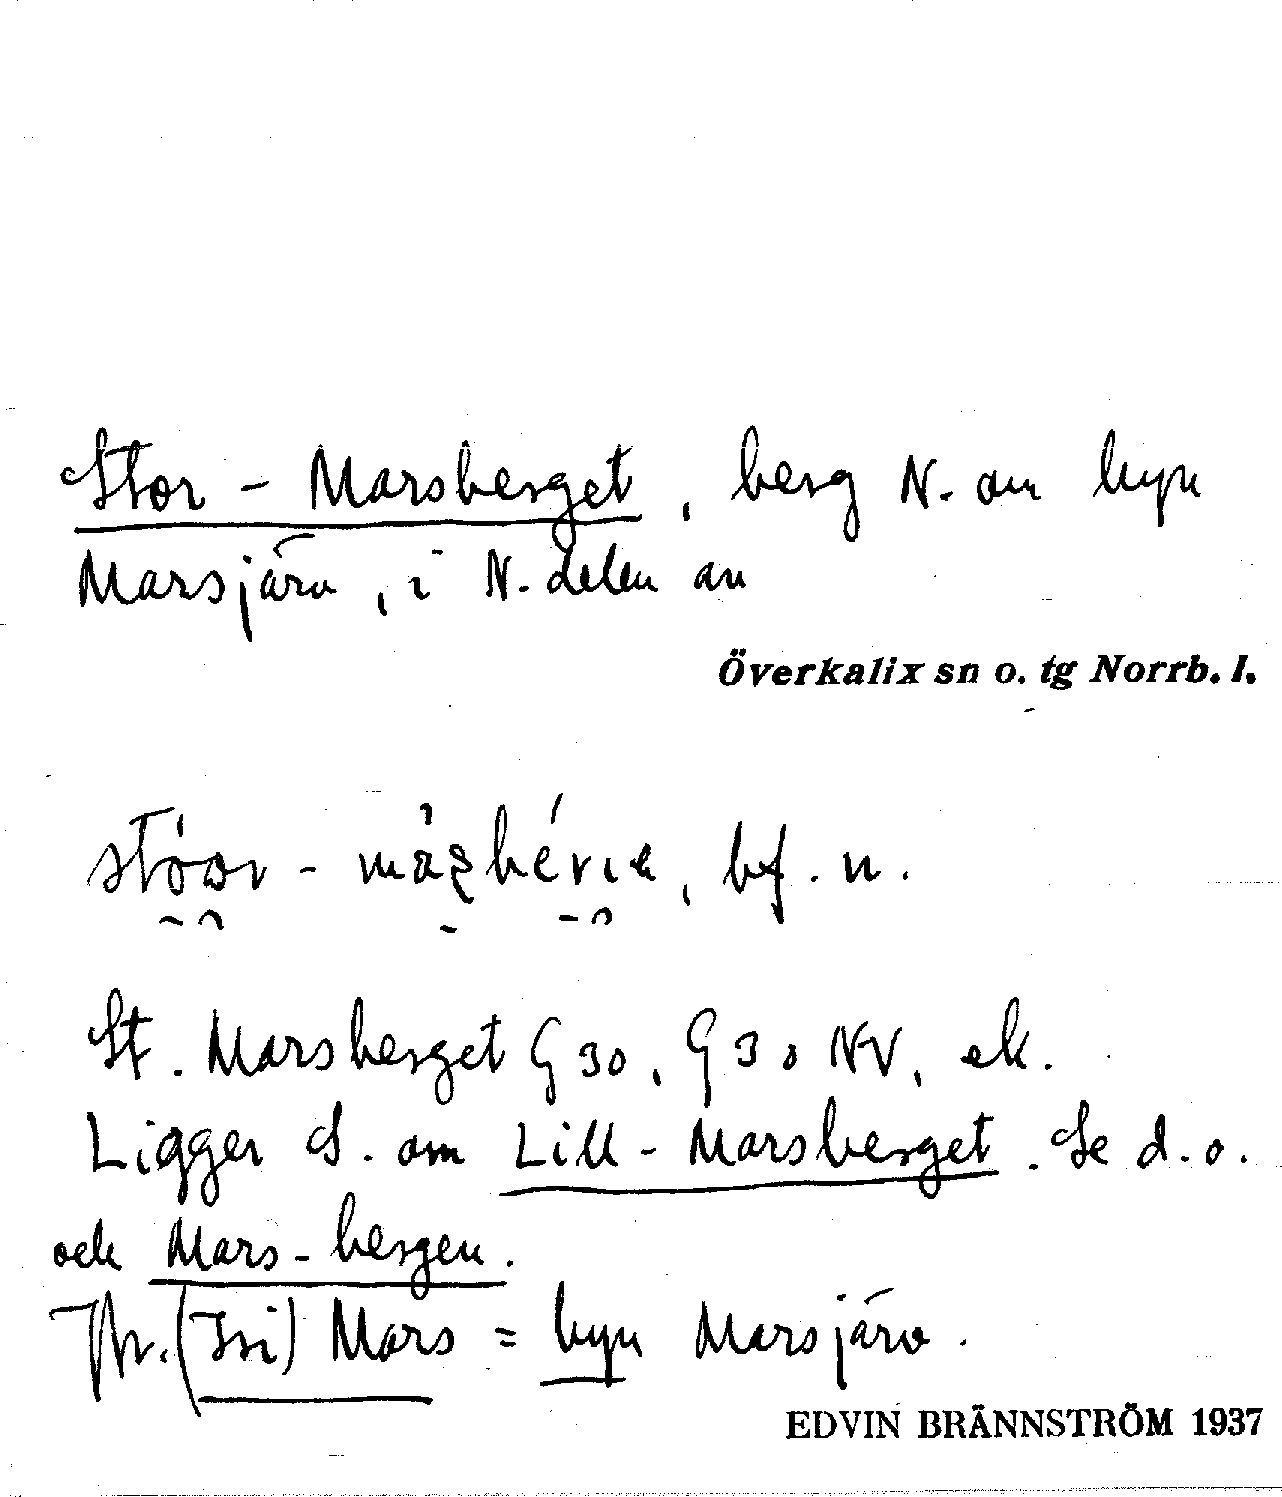 Stor-Marsberget, berg N. om byn
Marsjärv, i N. delen av
Överkalix sn o. tg Norrb. l.
bf. n.
St. Marsberget G 30, G 30 NV, ek.
Ligger S. om Lill-Marsberget. Se d. o.
och Mars-bergen.
Jfr. (Isi) Mars = byn Marsjärv.
EDVIN BRÄNNSTRÖM 1937